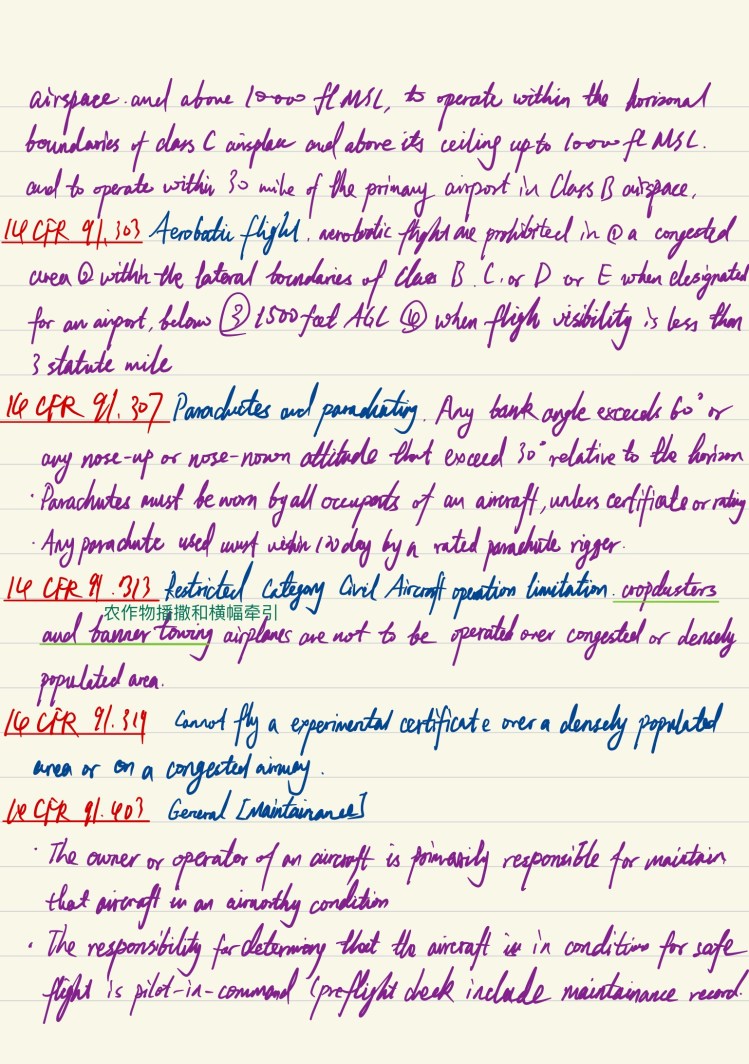 airspace. and above 10000 ft MSL, to operate within the horizonal
boundaries of class C airspace and above its ceiling up to 10000 ft MSL.
and to operate within 30 mile of the primary airport in Class B airspace.
14 CFR 91.303 Aerobatic flight. aerobatic flight are prohibited in ① a congested
area ② within the lateral boundaries of Class B. C. or D or E when designated
for an airport, below ③ 1500 feet AGL ④ when fligh visibility is less than
3 statute mile
14 CFR 91.307 Parachutes and parachuting. Any bank angle exceeds 60° or
any nose-up or nose-nown attitude that exceed 30° relative to the horizon
· Parachutes must be worn by all occupants of an aircraft, unless certificate or rating
· Any parachute used must within 120 day by a rated parachute rigger.
14 CFR 91.313 Restricted Category Civil Aircraft operation limitation. cropdusters
农作物播撒和横幅牵引
and banner towing airplanes are not to be operated over congested or densely
populated area.
14 CFR 91.319 Cannot fly a experimental certificate over a densely populated
area or on a congested airway.
14 CFR 91.403 General [Maintainance]
· The owner or operator of an aircraft is primarily responsible for maintain
that aircraft in an airworthy condition
· The responsibility for determing that the aircraft is in condition for safe
flight is pilot-in-command (preflight check include maintainance record.